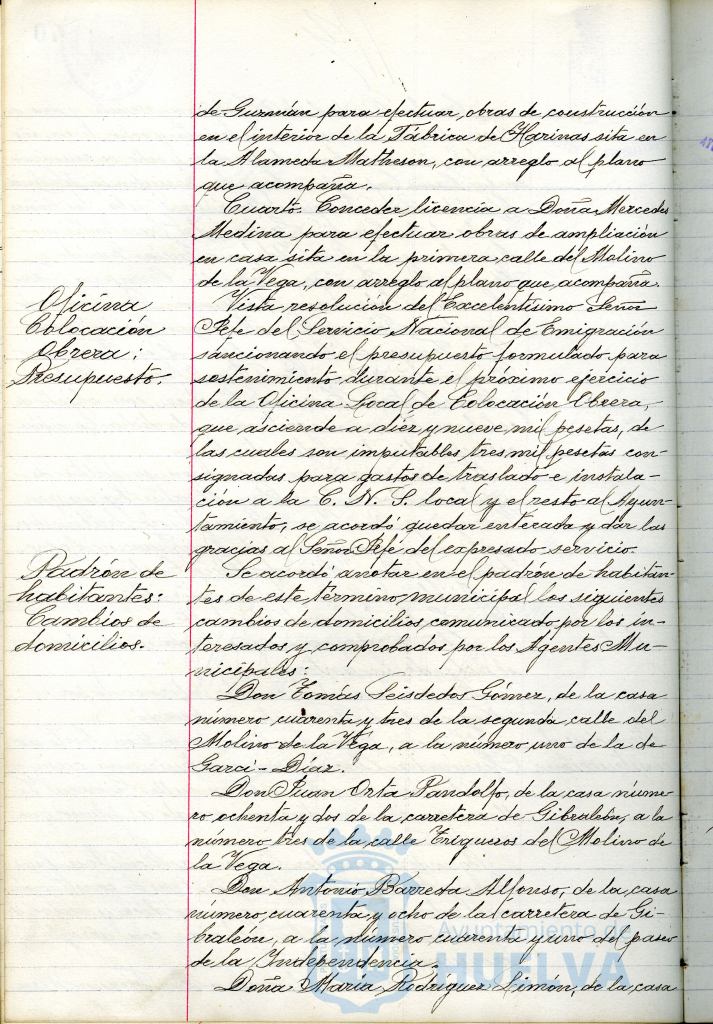 de Guzmán para efectuar obras de construcción
en el interior de la Fábrica de Harinas sita en
la Alameda Matheson, con arreglo al plano
que acompaña.
Cuarto. Conceder licencia a Doña Mercedes
Medina para efectuar obras de ampliación
en casa sita en la primera calle del Molino
de la Vega, con arreglo al plano que acompaña.
Oficina
Colocación
Obrera:
Presupuesto.
Vista resolución del Excelentísimo Señor
Jefe del Servicio Nacional de Emigración
sancionando el presupuesto formulado para
sostenimiento durante el próximo ejercicio
de la Oficina Local de Colocación Obrera,
que asciende a diéz y nueve mil pesetas, de
las cuales son imputables tres mil pesetas con-
signadas para gastos de traslado e instala-
ción a la C. N. S. local y el resto al Ayun-
tamiento, se acordó quedar enterada y dar las
gracias al Señor Jefe del expresado servicio.
Padrón de
habitantes:
Cambios de
domicilios.
Se acordó anotar en el padrón de habitan-
tes de este término municipal los siguientes
cambios de domicilios comunicado por los in-
teresados y comprobados por los Agentes Mu-
nicipales:
Don Tomás Seisdedos Gómez, de la casa
número cuarenta y tres de la segunda calle del
Molino de la Vega, a la número uno de la de
Garci-Díaz.
Don Juan Orta Pandolfo, de la casa núme-
ro ochenta y dos de la carretera de Gibraleón, a la
número tres de la calle Trigueros del Molino de
la Vega.
Don Antonio Barreda Alfonso, de la casa
número cuarenta y ocho de la carretera de Gi-
braleón, a la número cuarenta y uno del paseo
de la Independencia.
Doña María Rodríguez Limón, de la casa
Ayuntamiento de
HUELVA